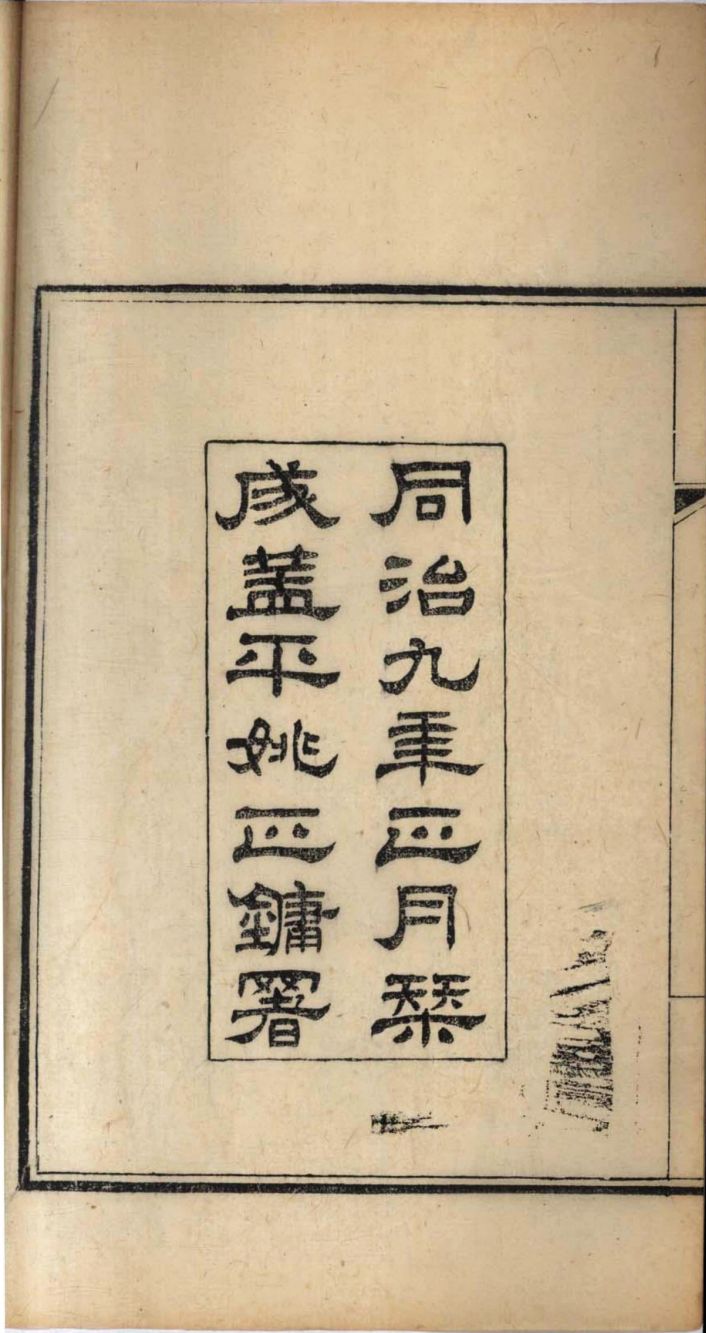 同治九年正月栞
成蓋平姚正鏞署